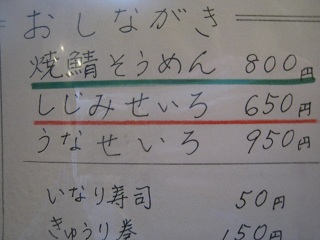 おしながき
焼鯖そうめん 800円
しじみせいろ 650円
うなせいろ 950円
いなり寿司 50円
きゅうり巻 150円